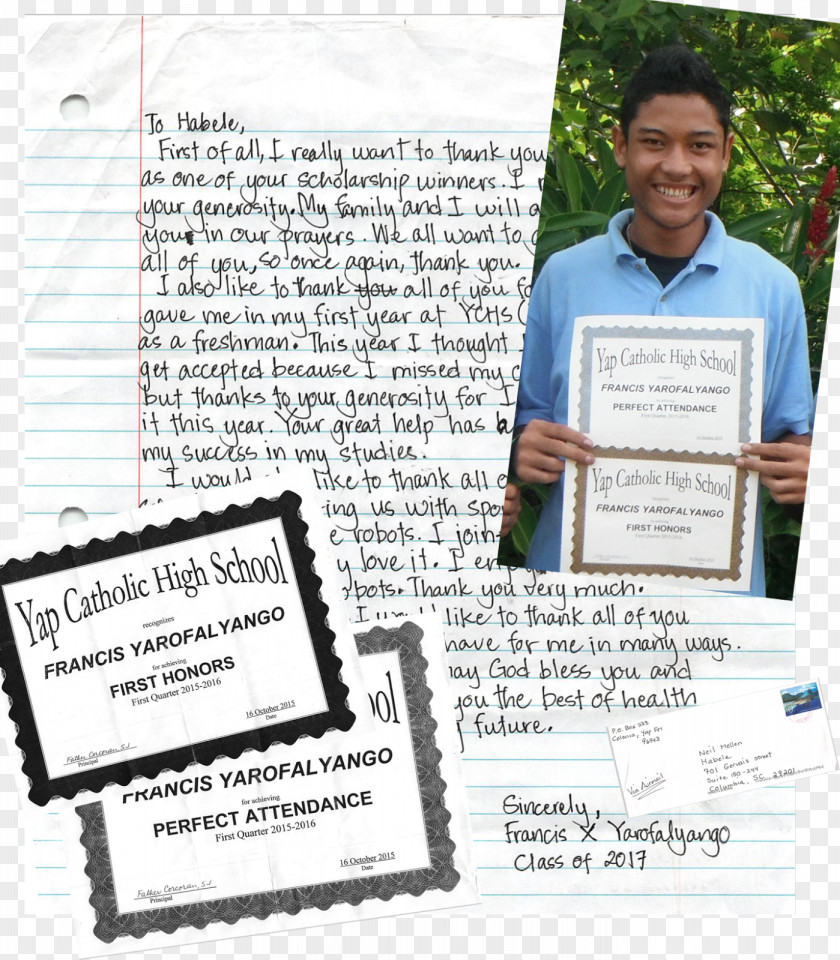 To Habele,
First of all, I really want to thank you
as one of your scholarship winners. I
your generosity. My family and I will a
you in our prayers. We all want to
all of you, so once again, thank you.
I also like to thank you all of you fo
gave me in my first year at YCHS (
as a freshman. This year I thought
get accepted because I missed my
but thanks to your generosity for I
it this year. Your great help has
my success in my studies.
I would like to thank all o
ing us with spo
e robots. I join
y love it. I enj
bots. Thank you very much.
I would like to thank all of you
have for me in many ways.
may God bless you and
you the best of health
y future.
Sincerely,
Francis X Yarofalyango
Class of 2017
Yap Catholic High School
recognizes
FRANCIS YAROFALYANGO
for achieving
PERFECT ATTENDANCE
First Quarter 2015-2016
16 October 2015
Yap Catholic High School
recognizes
FRANCIS YAROFALYANGO
for achieving
FIRST HONORS
First Quarter 2015-2016
Yap Catholic High School
recognizes
FRANCIS YAROFALYANGO
for achieving
FIRST HONORS
First Quarter 2015-2016
16 October 2015
Date
Father Corcoran, SJ
Principal
ol
FRANCIS YAROFALYANGO
for achieving
PERFECT ATTENDANCE
First Quarter 2015-2016
16 October 2015
Date
Father Corcoran, SJ
Principal
P.O. Box 233
Colonia, Yap FM
96943
Neil Mellen
Habele
701 Gervais street
Suite 150-244
Columbia, SC 29201
Via Airmail